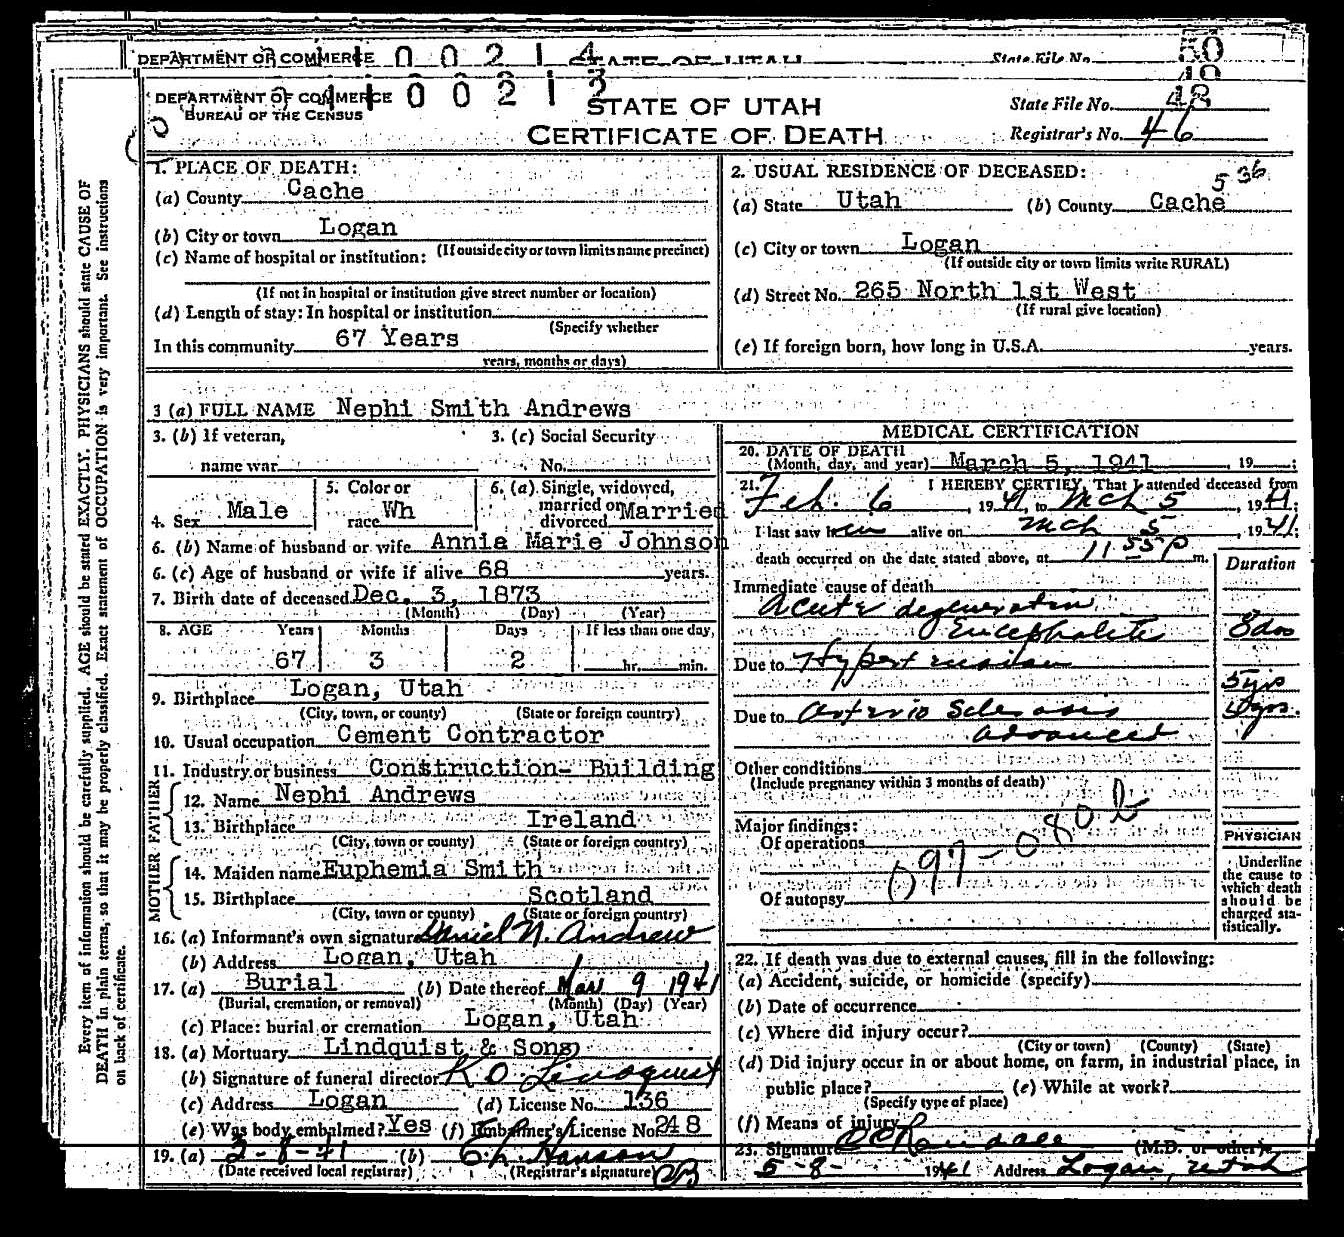 DEPARTMENT OF COMMERCE 1 0 0 2 1 4 STATE OF UTAH State File No. 50
49
DEPARTMENT OF COMMERCE 1 0 0 2 1 3 STATE OF UTAH State File No. 48
BUREAU OF THE CENSUS CERTIFICATE OF DEATH Registrar's No. 46
Every item of information should be carefully supplied. AGE should be stated EXACTLY. PHYSICIANS should state CAUSE OF
DEATH in plain terms, so that it may be properly classified. Exact statement of OCCUPATION is very important. See instructions
on back of certificate.
1. PLACE OF DEATH:
(a) County Cache
(b) City or town Logan
(If outside city or town limits name precinct)
(c) Name of hospital or institution:
(If not in hospital or institution give street number or location)
(d) Length of stay: In hospital or institution
(Specify whether
In this community 67 Years
years, months or days)
2. USUAL RESIDENCE OF DECEASED: 5 36
(a) State Utah (b) County Cache
(c) City or town Logan
(If outside city or town limits write RURAL)
(d) Street No. 265 North 1st West
(If rural give location)
(e) If foreign born, how long in U.S.A. years.
3 (a) FULL NAME Nephi Smith Andrews
3. (b) If veteran, 3. (c) Social Security
name war No.
4. Sex Male 5. Color or race Wh 6. (a) Single, widowed, married or divorced Married
6. (b) Name of husband or wife Annie Marie Johnson
6. (c) Age of husband or wife if alive 68 years.
7. Birth date of deceased Dec. 3, 1873
(Month) (Day) (Year)
8. AGE Years Months Days If less than one day,
67 3 2 hr. min.
9. Birthplace Logan, Utah
(City, town, or county) (State or foreign country)
10. Usual occupation Cement Contractor
11. Industry or business Construction- Building
FATHER
12. Name Nephi Andrews
13. Birthplace Ireland
(City, town or county) (State or foreign country)
MOTHER
14. Maiden name Euphemia Smith
15. Birthplace Scotland
(City, town or county) (State or foreign country)
16. (a) Informant's own signature Daniel N. Andrew
(b) Address Logan, Utah
17. (a) Burial (b) Date thereof Mar 9 1941
(Burial, cremation, or removal) (Month) (Day) (Year)
(c) Place: burial or cremation Logan, Utah
18. (a) Mortuary Lindquist & Sons
(b) Signature of funeral director K O Lindquist
(c) Address Logan (d) License No. 136
(e) Was body embalmed? Yes (f) Embalmer's License No. 248
19. (a) 3-8-41 (b) Hanson
(Date received local registrar) (Registrar's signature)
MEDICAL CERTIFICATION
20. DATE OF DEATH
(Month, day, and year) March 5, 1941, 19 ;
21. I HEREBY CERTIFY, That I attended deceased from
Feb. 6, 1941, to Mch 5, 1941.
I last saw him alive on Mch 5, 1941.
death occurred on the date stated above, at 11 55 P m.
Duration
Immediate cause of death
Acute degeneration
Encephalitis
Due to Hypertension
5 yrs
Due to Arterio Sclerosis yrs.
advanced
Other conditions
(Include pregnancy within 3 months of death)
Major findings:
Of operations
097-080 b
Of autopsy
PHYSICIAN
Underline
the cause to
which death
should be
charged sta-
tistically.
22. If death was due to external causes, fill in the following:
(a) Accident, suicide, or homicide (specify)
(b) Date of occurrence
(c) Where did injury occur?
(City or town) (County) (State)
(d) Did injury occur in or about home, on farm, in industrial place, in
public place? (e) While at work?
(Specify type of place)
(f) Means of injury
23. Signature (M.D. or other)
5-8- 1941 Address Logan, Utah